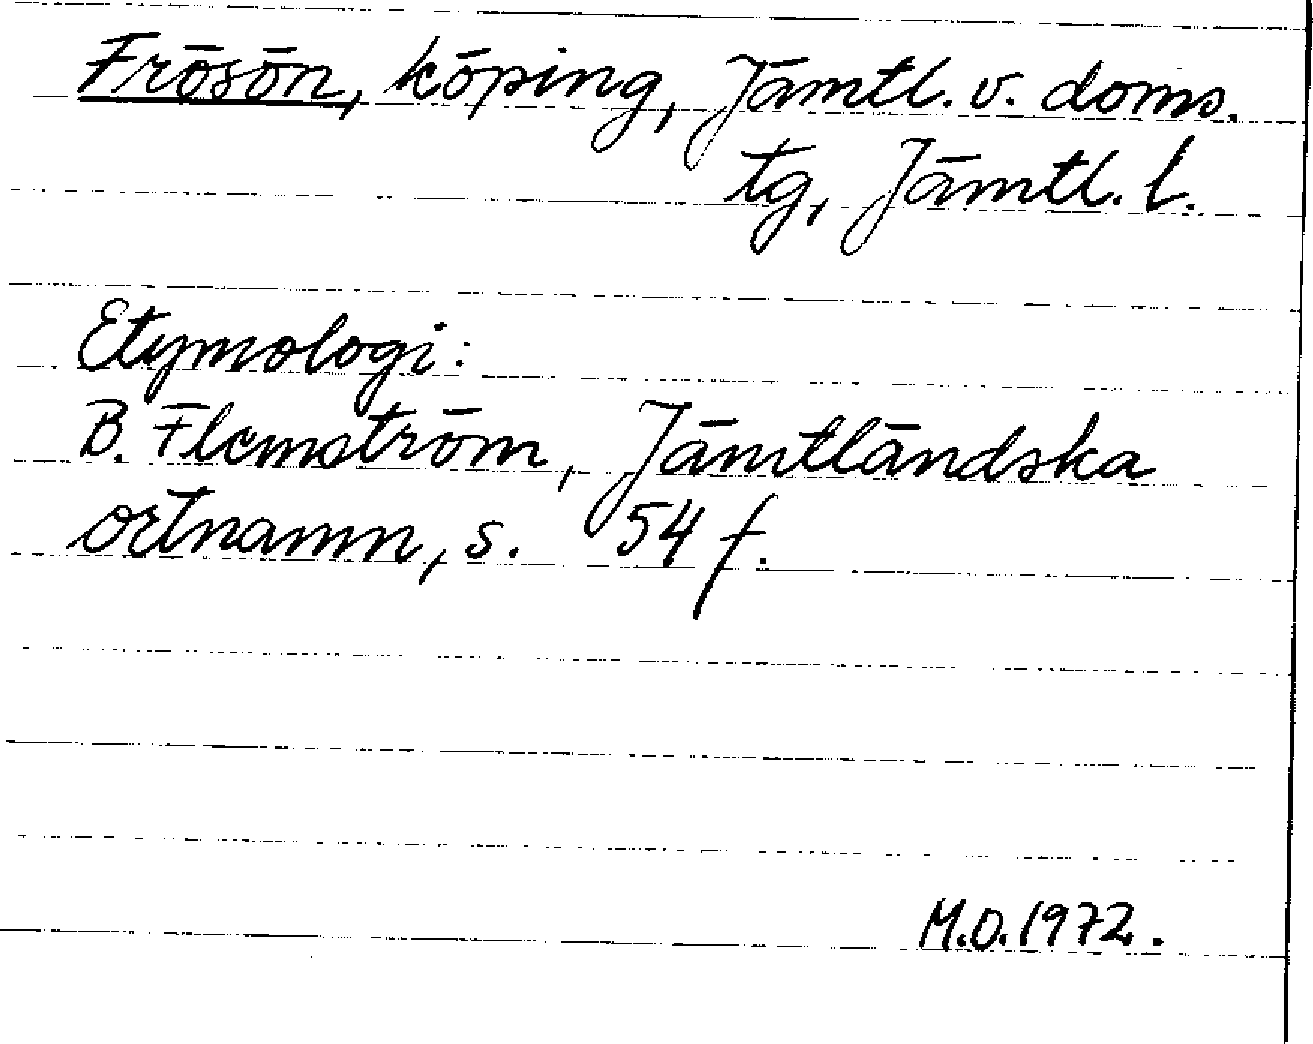 Frösön, köping, Jämtl. v. doms.
tg, Jämtl. l.
Etymologi:
B. Flemström, Jämtländska
ortnamn, s. 54 f.
M.O. 1972.